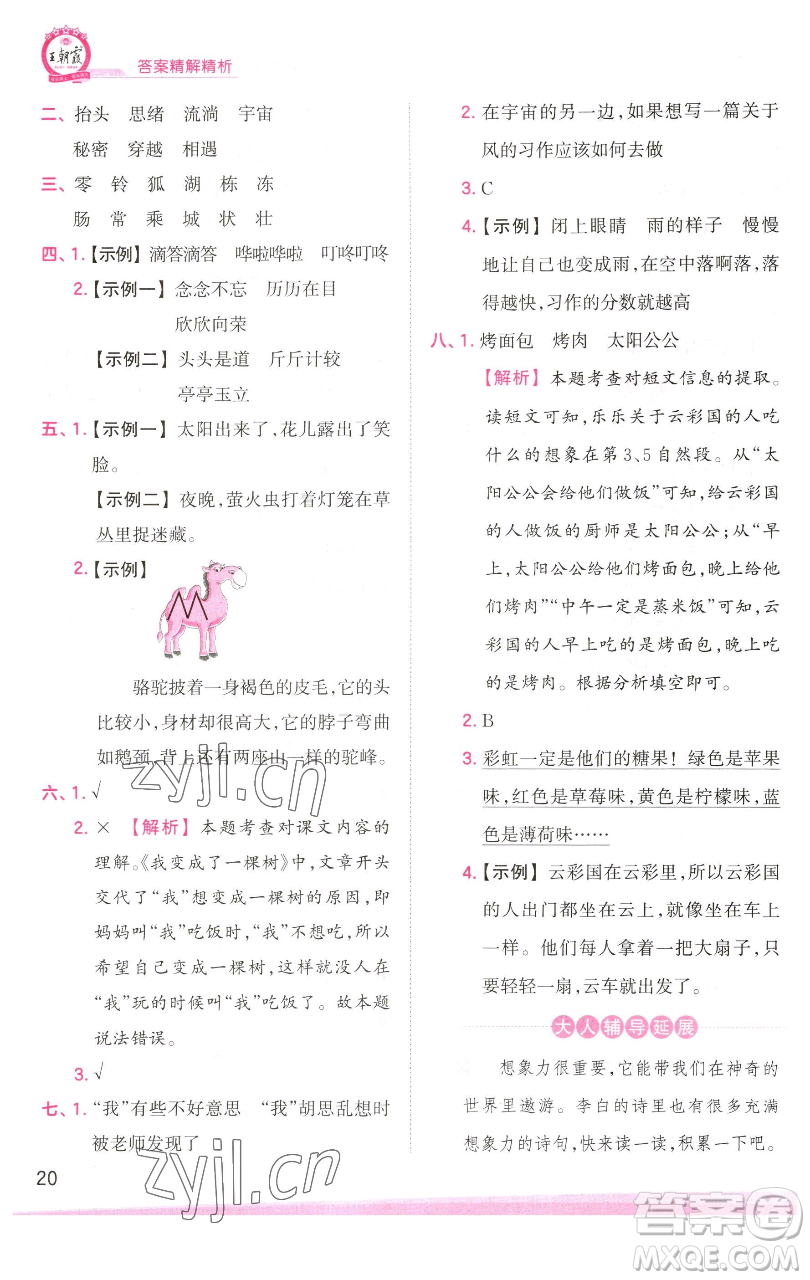 王朝霞
答案精解精析
二、抬头 思绪 流淌 宇宙
秘密 穿越 相遇
三、零 铃 狐 湖 栋 冻
肠 常 乘 城 状 壮
四、1.【示例】滴答滴答 哗啦哗啦 叮咚叮咚
2.【示例一】念念不忘 历历在目
欣欣向荣
【示例二】头头是道 斤斤计较
亭亭玉立
五、1.【示例一】太阳出来了,花儿露出了笑
脸。
【示例二】夜晚,萤火虫打着灯笼在草
丛里捉迷藏。
2.【示例】
骆驼披着一身褐色的皮毛,它的头
比较小,身材却很高大,它的脖子弯曲
如鹅颈,背上还有两座山一样的驼峰。
六、1.√
2.× 【解析】本题考查对课文内容的
理解。《我变成了一棵树》中,文章开头
交代了“我”想变成一棵树的原因,即
妈妈叫“我”吃饭时,“我”不想吃,所以
希望自己变成一棵树,这样就不会在
“我”玩的时候叫“我”吃饭了。故本题
说法错误。
3.√
七、1.“我”有些不好意思 “我”胡思乱想时
被老师发现了
20
2.在宇宙的另一边,如果想写一篇关于
风的习作应该如何去做
3.C
4.【示例】闭上眼睛 雨的样子 慢慢
地让自己也变成雨,在空中落啊落,落
得越快,习作的分数就越高
八、1.烤面包 烤肉 太阳公公
【解析】本题考查对短文信息的提取。
读短文可知,乐乐关于云彩国的人吃
什么的想象在第3、5自然段。从“太
阳公公会给他们做饭”可知,给云彩国
的人做饭的厨师是太阳公公;从“早
上,太阳公公给他们烤面包,晚上给他
们烤肉”“中午一定是蒸米饭”可知,云
彩国的人早上吃的是烤面包,晚上吃
的是烤肉。根据分析填空即可。
2.B
3.彩虹一定是他们的糖果!绿色是苹果
味,红色是草莓味,黄色是柠檬味,蓝
色是薄荷味……
4.【示例】云彩国在云彩里,所以云彩国
的人出门都坐在云上,就像坐在车上
一样。他们每人拿着一把大扇子,只
要轻轻一扇,云车就出发了。
大人辅导延展
想象力很重要,它能带我们在神奇的
世界里遨游。李白的诗里也有很多充满
想象力的诗句,快来读一读,积累一下吧。
zyjl.cn
zyjl.cn
答案卷
MXQE.COM